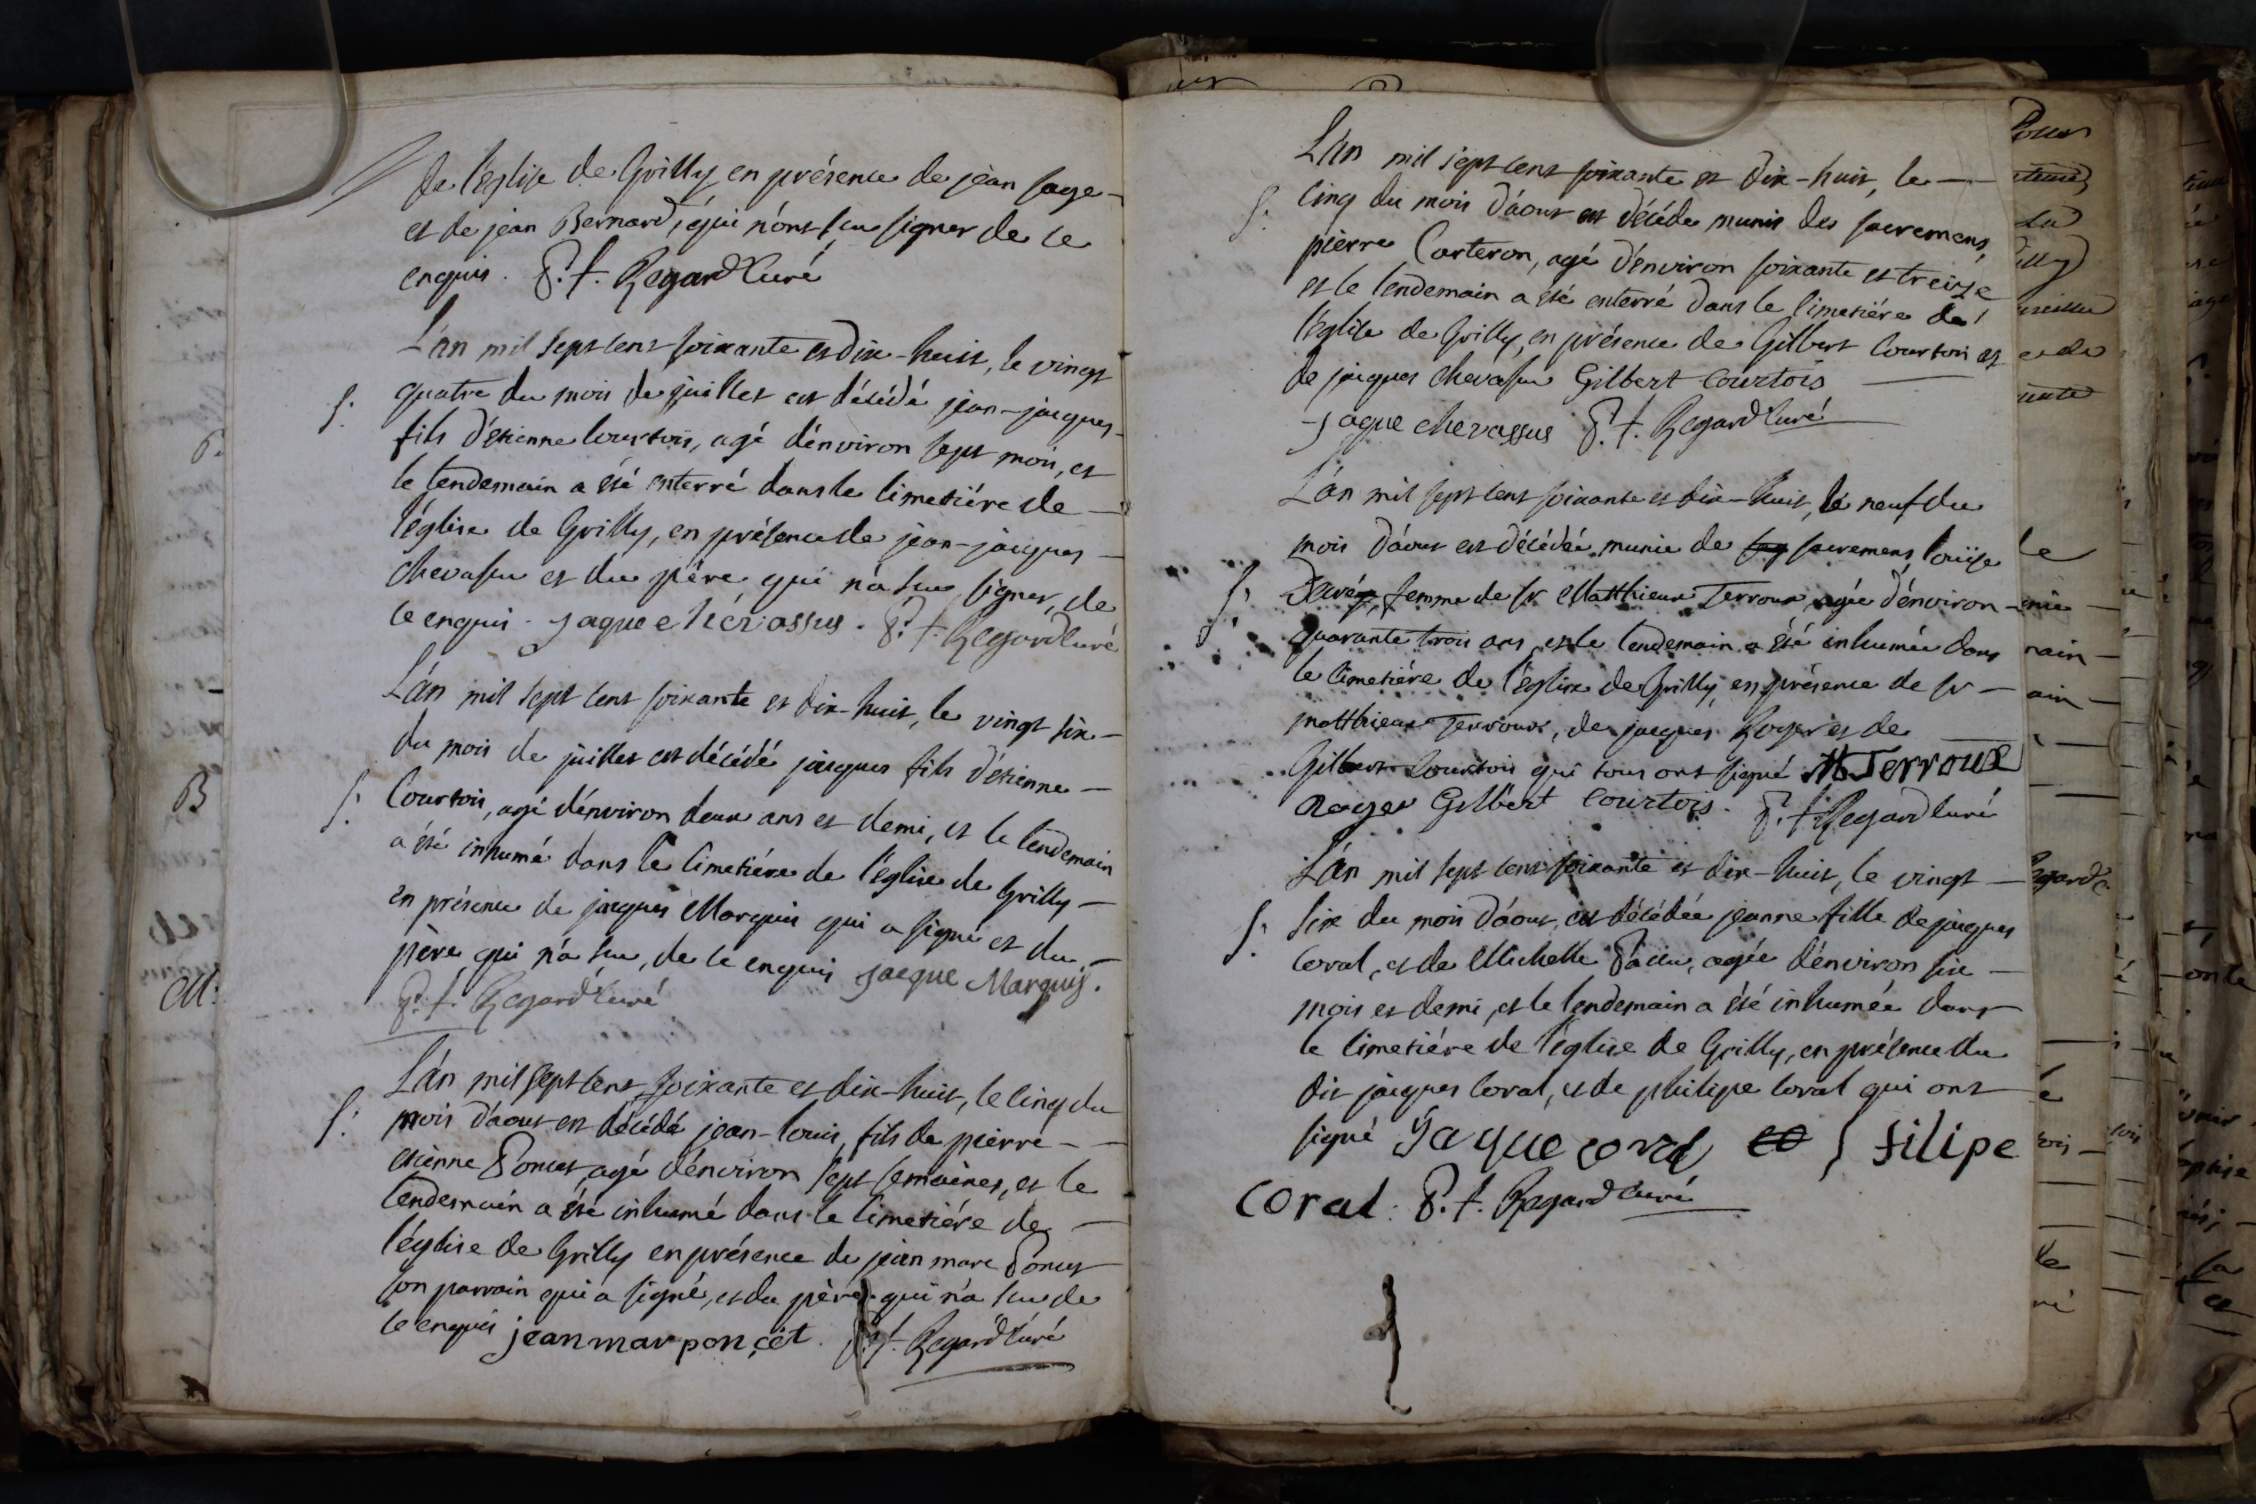 de l'église de Grilly en présence de jean sage
et de jean Bernard, qui n'ont scu signer de ce
enquis. P. f. Regard Curé
L'an mil sept cent soixante et dix-huit, le vingt
S. quatre du mois de juillet est décédé jean-jacques
fils d'étienne Courtois, agé d'environ sept mois, et
le lendemain a été enterré dans le cimetiére de
l'église de Grilly, en présence de jean-jacques
chevassu et du pére, qui n'a scu signer, de
ce enquis. jaque chevassus. P. f. Regard Curé
L'an mil sept cent soixante et dix-huit, le vingt six
du mois de juillet est décédé jacques fils d'étienne
S. Courtois, agé d'environ deux ans et demi, et le lendemain
a été inhumé dans le Cimetiére de l'église de Grilly
en présence de jacques Marquis qui a signé et du
père qui n'a scu, de ce enquis jacque Marquis.
P. f. Regard Curé
L'an mil sept cent soixante et dix-huit, le cinq du
S. mois d'aout est décédé jean-louis, fils de pierre
etienne Poncet, agé d'environ sept semaines, et le
lendemain a été inhumé dans le cimetiére de
l'église de Grilly en présence de jean marc Poncet
son parrain qui a signé, et du père qui n'a scu de
ce enquis jean mar ponçet. P. f. Regard Curé
L'an mil sept cent soixante et dix-huit, le
S. cinq du mois d'aout est décédé munis des sacremens,
pièrre Carteron, agé d'environ soixante et treize
et le lendemain a été enterré dans le cimetiére de
l'église de Grilly, en présence de Gilbert Courtois et
de jacques chevassu Gilbert Courtois
jaque chevassus P. f. Regard Curé
L'an mil sept cent soixante et dix-huit, le neuf du
mois d'aout est décédée munie de sacremens, louïse
S. femme de sr Matthieux Terroux, agée d'environ
quarante trois ans, et le lendemain a été inhumée dans
le cimetiére de l'église de Grilly, en présence de sr
matthieux Terroux, de jacques Roger et de
Gilbert Courtois qui tous ont signé M Terroux
Roger Gilbert Courtois. P. f. Regard Curé
L'an mil sept cent soixante et dix-huit, le vingt
S. six du mois d'aout, est décédée jeanne fille de jacques
Coral, et de Michelle agée d'environ six
mois et demi, et le lendemain a été inhumée dans
le cimetiére de l'église de Grilly, en présence du
dit jacques Coral, et de philipe Coral qui ont
signé Jaque coral filipe
coral. P. f. Regard Curé